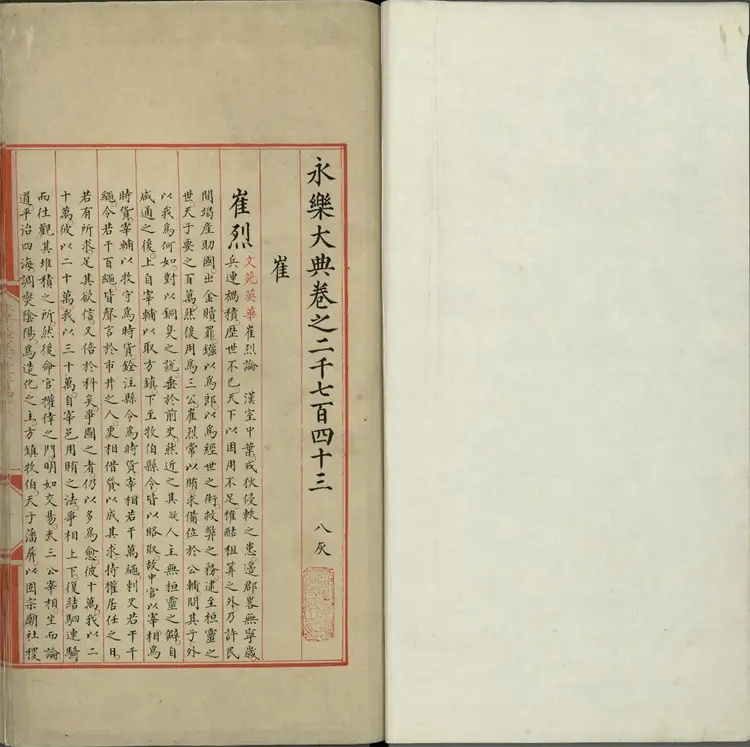 永樂大典卷之二千七百四十三 八灰
崔
崔烈 文苑英華崔烈論 漢室中葉戎狄侵軼之患邊郡畧無寧歲
兵連禍積歷世不已天下以困用不足榷酤租筭之外乃許民
間竭產助國出金贖罪鏹以爲郎以爲經世之術救弊之務逮至桓靈之
世天子要之百萬然後用爲三公崔烈常以賄求備位於公輔問其子外
以我爲何如對以銅臭之說垂於前史然近之其人主無桓靈之僻自
咸通之後上自宰輔以取方鎮下至牧伯縣令皆以賂取故中官以宰相爲
時貨宰輔以牧守爲時貨銓注縣令爲時貨宰相若干萬繩刺史若干千
繩令若干百繩皆聲言於市井之人更相借貸以成其求持權居任之日
若有所求足其欲信又倍於科矣爭圖之者仍以多爲愈彼十萬我以二
十萬彼以二十萬我以三十萬自宰邑用賄之法爭相上下復結駟連騎
而往觀其堆積之所然後命官權倖之門明如交易夫三公宰相坐而論
道平治四海調爕陰陽爲造化之主方鎮牧伯天子藩屏以固宗廟社稷